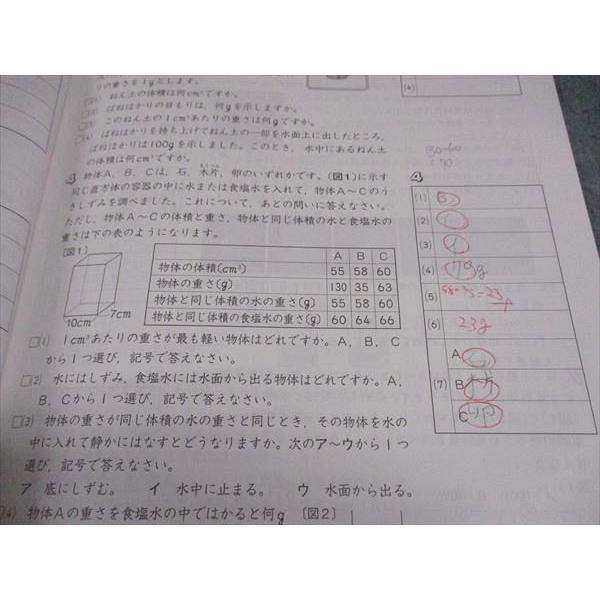 りの重さを1gとします。
ねん土の体積は何cm³ですか。
ばねはかりの目もりは、何gを示しますか。
このねん土の1cm³あたりの重さは何gですか。
ばねはかりを持ち上げてねん土の一部を水面上に出したところ,
ばねはかりは100gを示しました。このとき, 水中にあるねん土
の体積は何cm³ですか。
物体A, B, Cは, 石, 木片, 卵のいずれかです。〔図1〕に示す
同じ直方体の容器の中に水または食塩水を入れて, 物体A～Cのう
きしずみを調べました。これについて, あとの問いに答えなさい。
ただし, 物体A～Cの体積と重さ, 物体と同じ体積の水と食塩水の
重さは下の表のようになります。
〔図1〕
10cm 7cm
A B C
物体の体積(cm³) 55 58 60
物体の重さ(g) 130 35 63
物体と同じ体積の水の重さ(g) 55 58 60
物体と同じ体積の食塩水の重さ(g) 60 64 66
□(1) 1cm³あたりの重さが最も軽い物体はどれですか。A, B, C
から1つ選び, 記号で答えなさい。
□(2) 水にはしずみ, 食塩水には水面から出る物体はどれですか。A,
B, Cから1つ選び, 記号で答えなさい。
□(3) 物体の重さが同じ体積の水の重さと同じとき, その物体を水の
中に入れて静かにはなすとどうなりますか。次のア～ウから1つ
選び, 記号で答えなさい。
ア 底にしずむ。 イ 水中に止まる。 ウ 水面から出る。
(4) 物体Aの重さを食塩水の中ではかると何g 〔図2〕
(4)
4
(1) B
(2)
(3) イ
(4)
(5)
(6) 23g
(7)
A 石
B 木片
C 卵